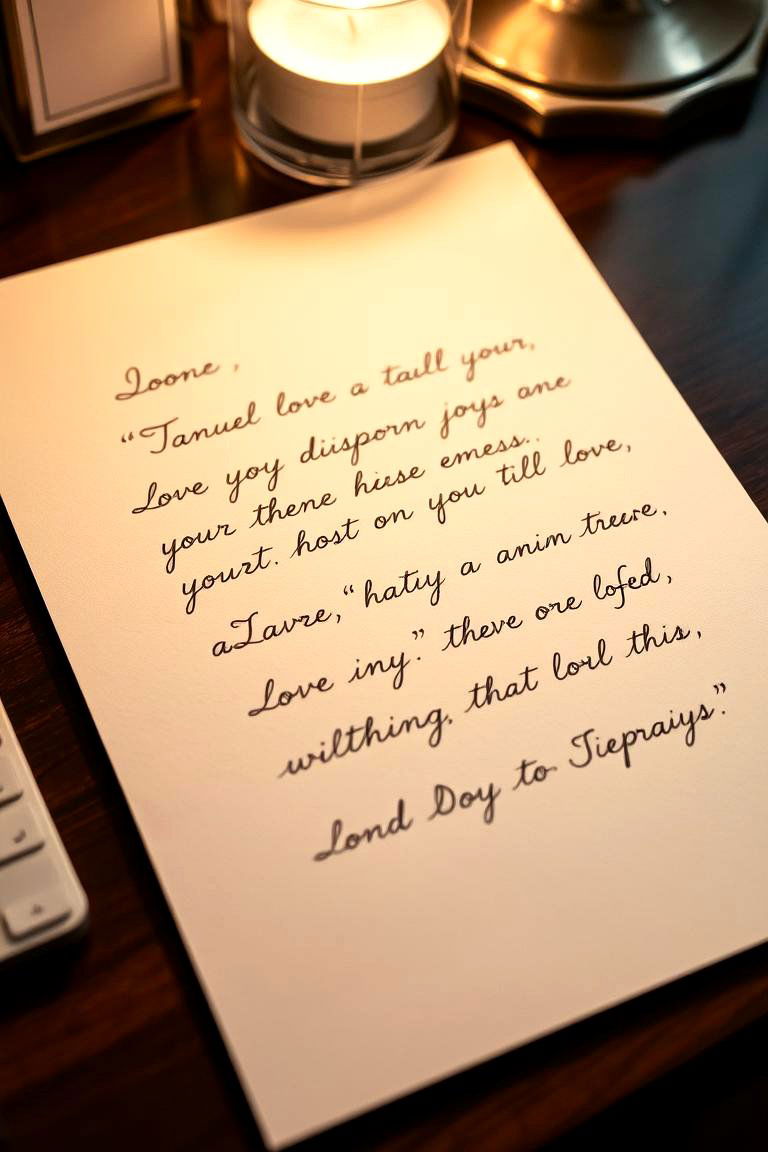 Joone,
“Tanuel love a taill your,
Love yoy diisporn joys ane
your thene hiese emess..
yourt. host on you till love,
aTavre,“ hatiy a anim treere.
Love iny.” theve ore lofed,
wilthing, that lorl this,
Lond Doy to Tiepraiys”.